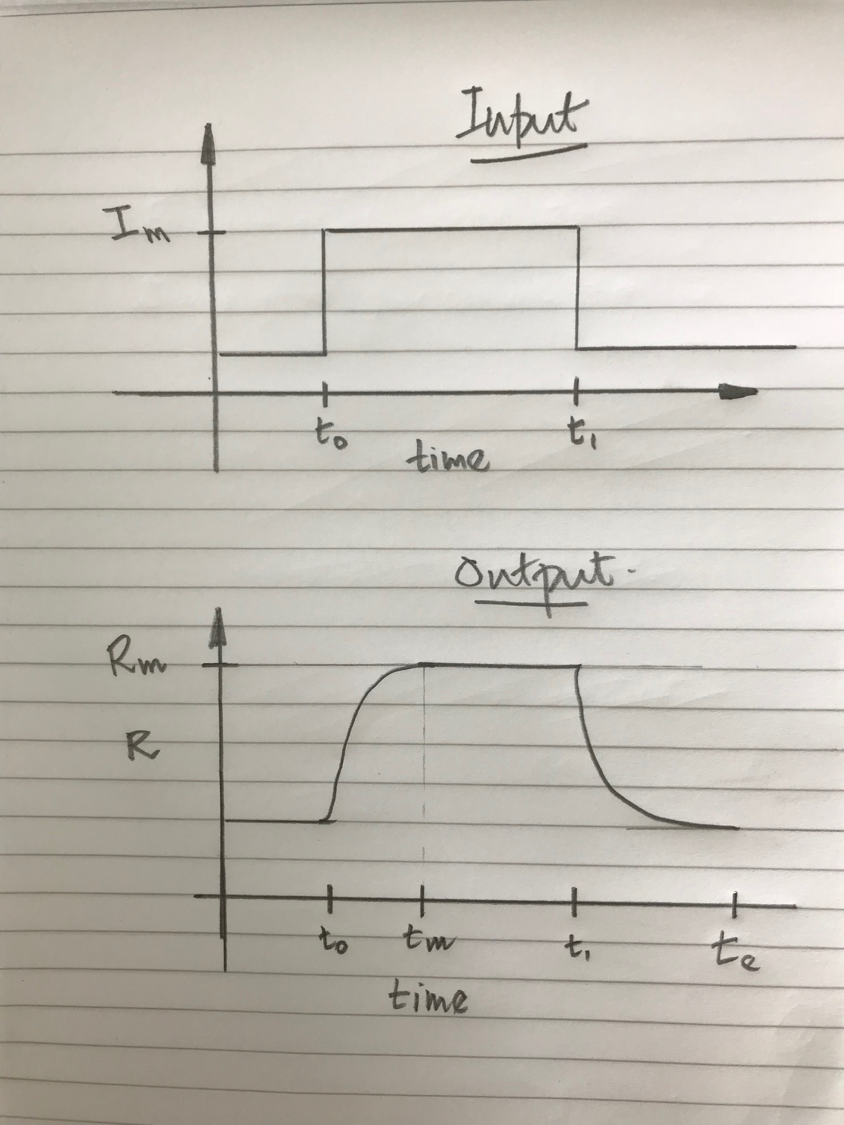 Input
Im
t₀
t₁
time
Output.
Rm
R
t₀
tm
t₁
te
time